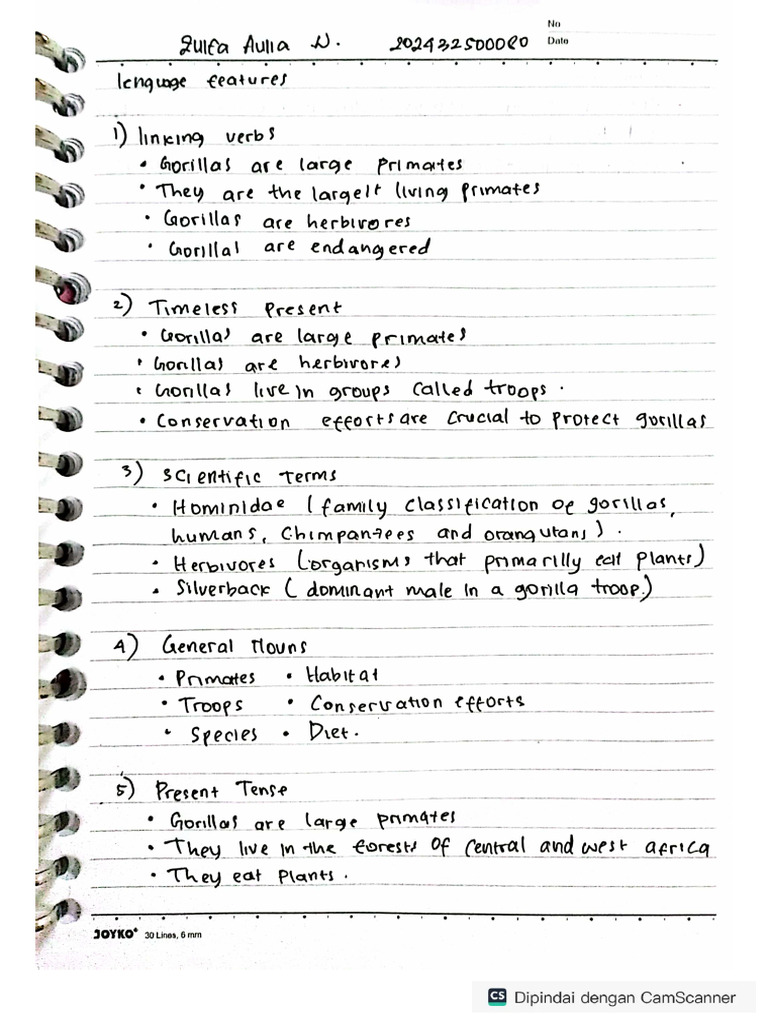 No
Zulfa Aulia N. 202432500080 Date
lenguage features
1) linking verbs
• Gorillas are large primates
• They are the largest living primates
• Gorillas are herbivores
• Gorillas are endangered
2) Timeless Present
• Gorillas are large primates
• Gorillas are herbivores
• Gorillas live in groups called troops.
• Conservation efforts are crucial to protect gorillas
3) Scientific Terms
• Hominidae (family classification of gorillas,
humans, Chimpanzees and orangutans).
• Herbivores (organisms that primarilly eat plants)
• Silverback (dominant male in a gorilla troop.)
4) General Nouns
• Primates • Habitat
• Troops • Conservation efforts
• Species • Diet.
5) Present Tense
• Gorillas are large primates
• They live in the forests of Central and west africa
• They eat plants.
JOYKO 30 Lines, 6 mm
CS Dipindai dengan CamScanner